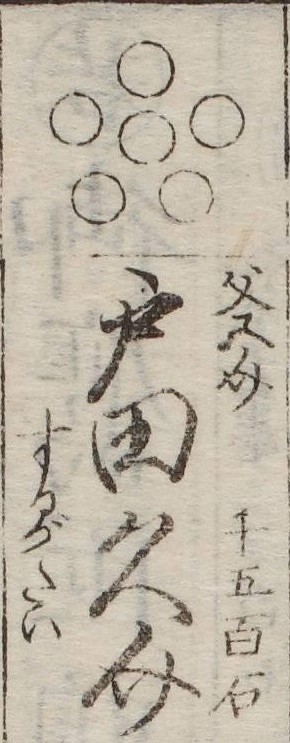 父又助 千五百石
戸田久助
するがだい